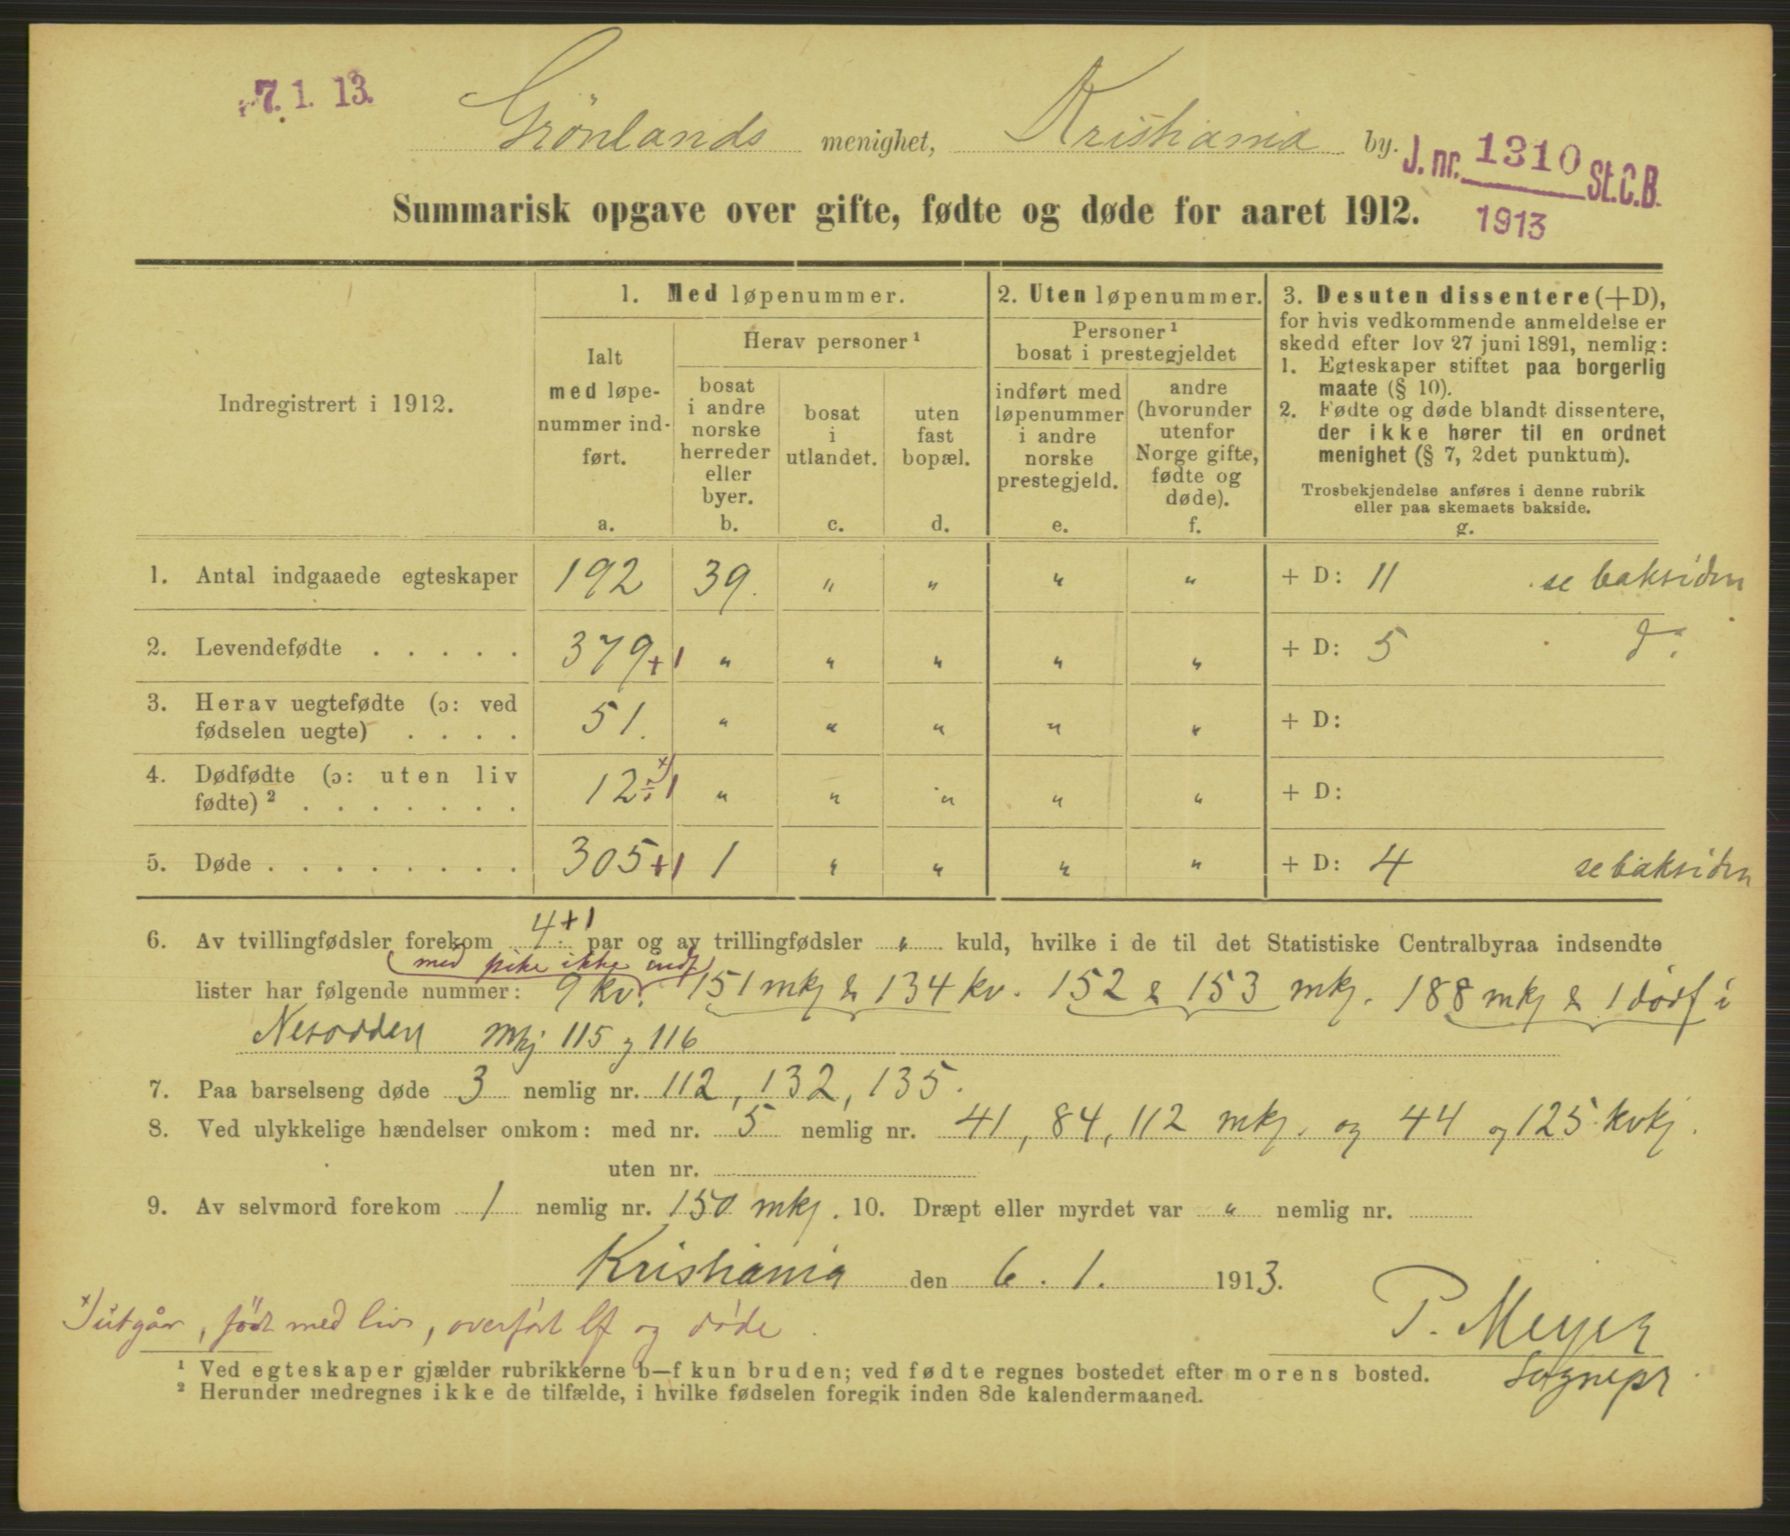 7. 1. 13.
Grönlands menighet, Kristiania by.
J. nr. 1310 St. C. B.
1913
Summarisk opgave over gifte, fødte og døde for aaret 1912.
Indregistrert i 1912.
1. Med løpenummer.
Ialt
med løpe-
nummer ind-
ført.
a.
Herav personer ¹
bosat
i andre
norske
herreder
eller
byer.
b.
bosat
i
utlandet.
c.
uten
fast
bopæl.
d.
2. Uten løpenummer.
Personer ¹
bosat i prestegjeldet
indført med
løpenummer
i andre
norske
prestegjeld.
e.
andre
(hvorunder
utenfor
Norge gifte,
fødte og
døde).
f.
3. Desuten dissentere (+D),
for hvis vedkommende anmeldelse er
skedd efter lov 27 juni 1891, nemlig:
1. Egteskaper stiftet paa borgerlig
maate (§ 10).
2. Fødte og døde blandt dissentere,
der ikke hører til en ordnet
menighet (§ 7, 2det punktum).
Trosbekjendelse anføres i denne rubrik
eller paa skemaets bakside.
g.
1. Antal indgaaede egteskaper 192 39. " " " " + D: 11 se baksiden
2. Levendefødte . . . . . 379 +1 " " " " " + D: 5 d:
3. Herav uegtefødte (ɔ: ved
fødselen uegte) . . . . 51. " " " " " + D:
4. Dødfødte (ɔ: uten liv
fødte) ² . . . . . . . 12 ÷1 x) " " " " " + D:
5. Døde . . . . . . . . 305 +1 1 " " " " + D: 4 se baksiden
6. Av tvillingfødsler forekom 4 +1 par og av trillingfødsler " kuld, hvilke i de til det Statistiske Centralbyraa indsendte
med pike ikke indf
lister har følgende nummer: 9 kv. 151 mkj & 134 kv. 152 & 153 mkj. 188 mkj & 1 dødf i
Nesodden mkj 115 og 116
7. Paa barselseng døde 3 nemlig nr. 112, 132, 135.
8. Ved ulykkelige hændelser omkom: med nr. 5 nemlig nr. 41, 84, 112 mkj. og 44 og 125 kvkj.
uten nr.
9. Av selvmord forekom 1 nemlig nr. 150 mkj. 10. Dræpt eller myrdet var " nemlig nr.
Kristiania den 6. 1. 1913.
P. Meyer
Sognepr
x) utgår, født med liv, overført lf og døde.
¹ Ved egteskaper gjælder rubrikkerne b—f kun bruden; ved fødte regnes bostedet efter morens bosted.
² Herunder medregnes ikke de tilfælde, i hvilke fødselen foregik inden 8de kalendermaaned.